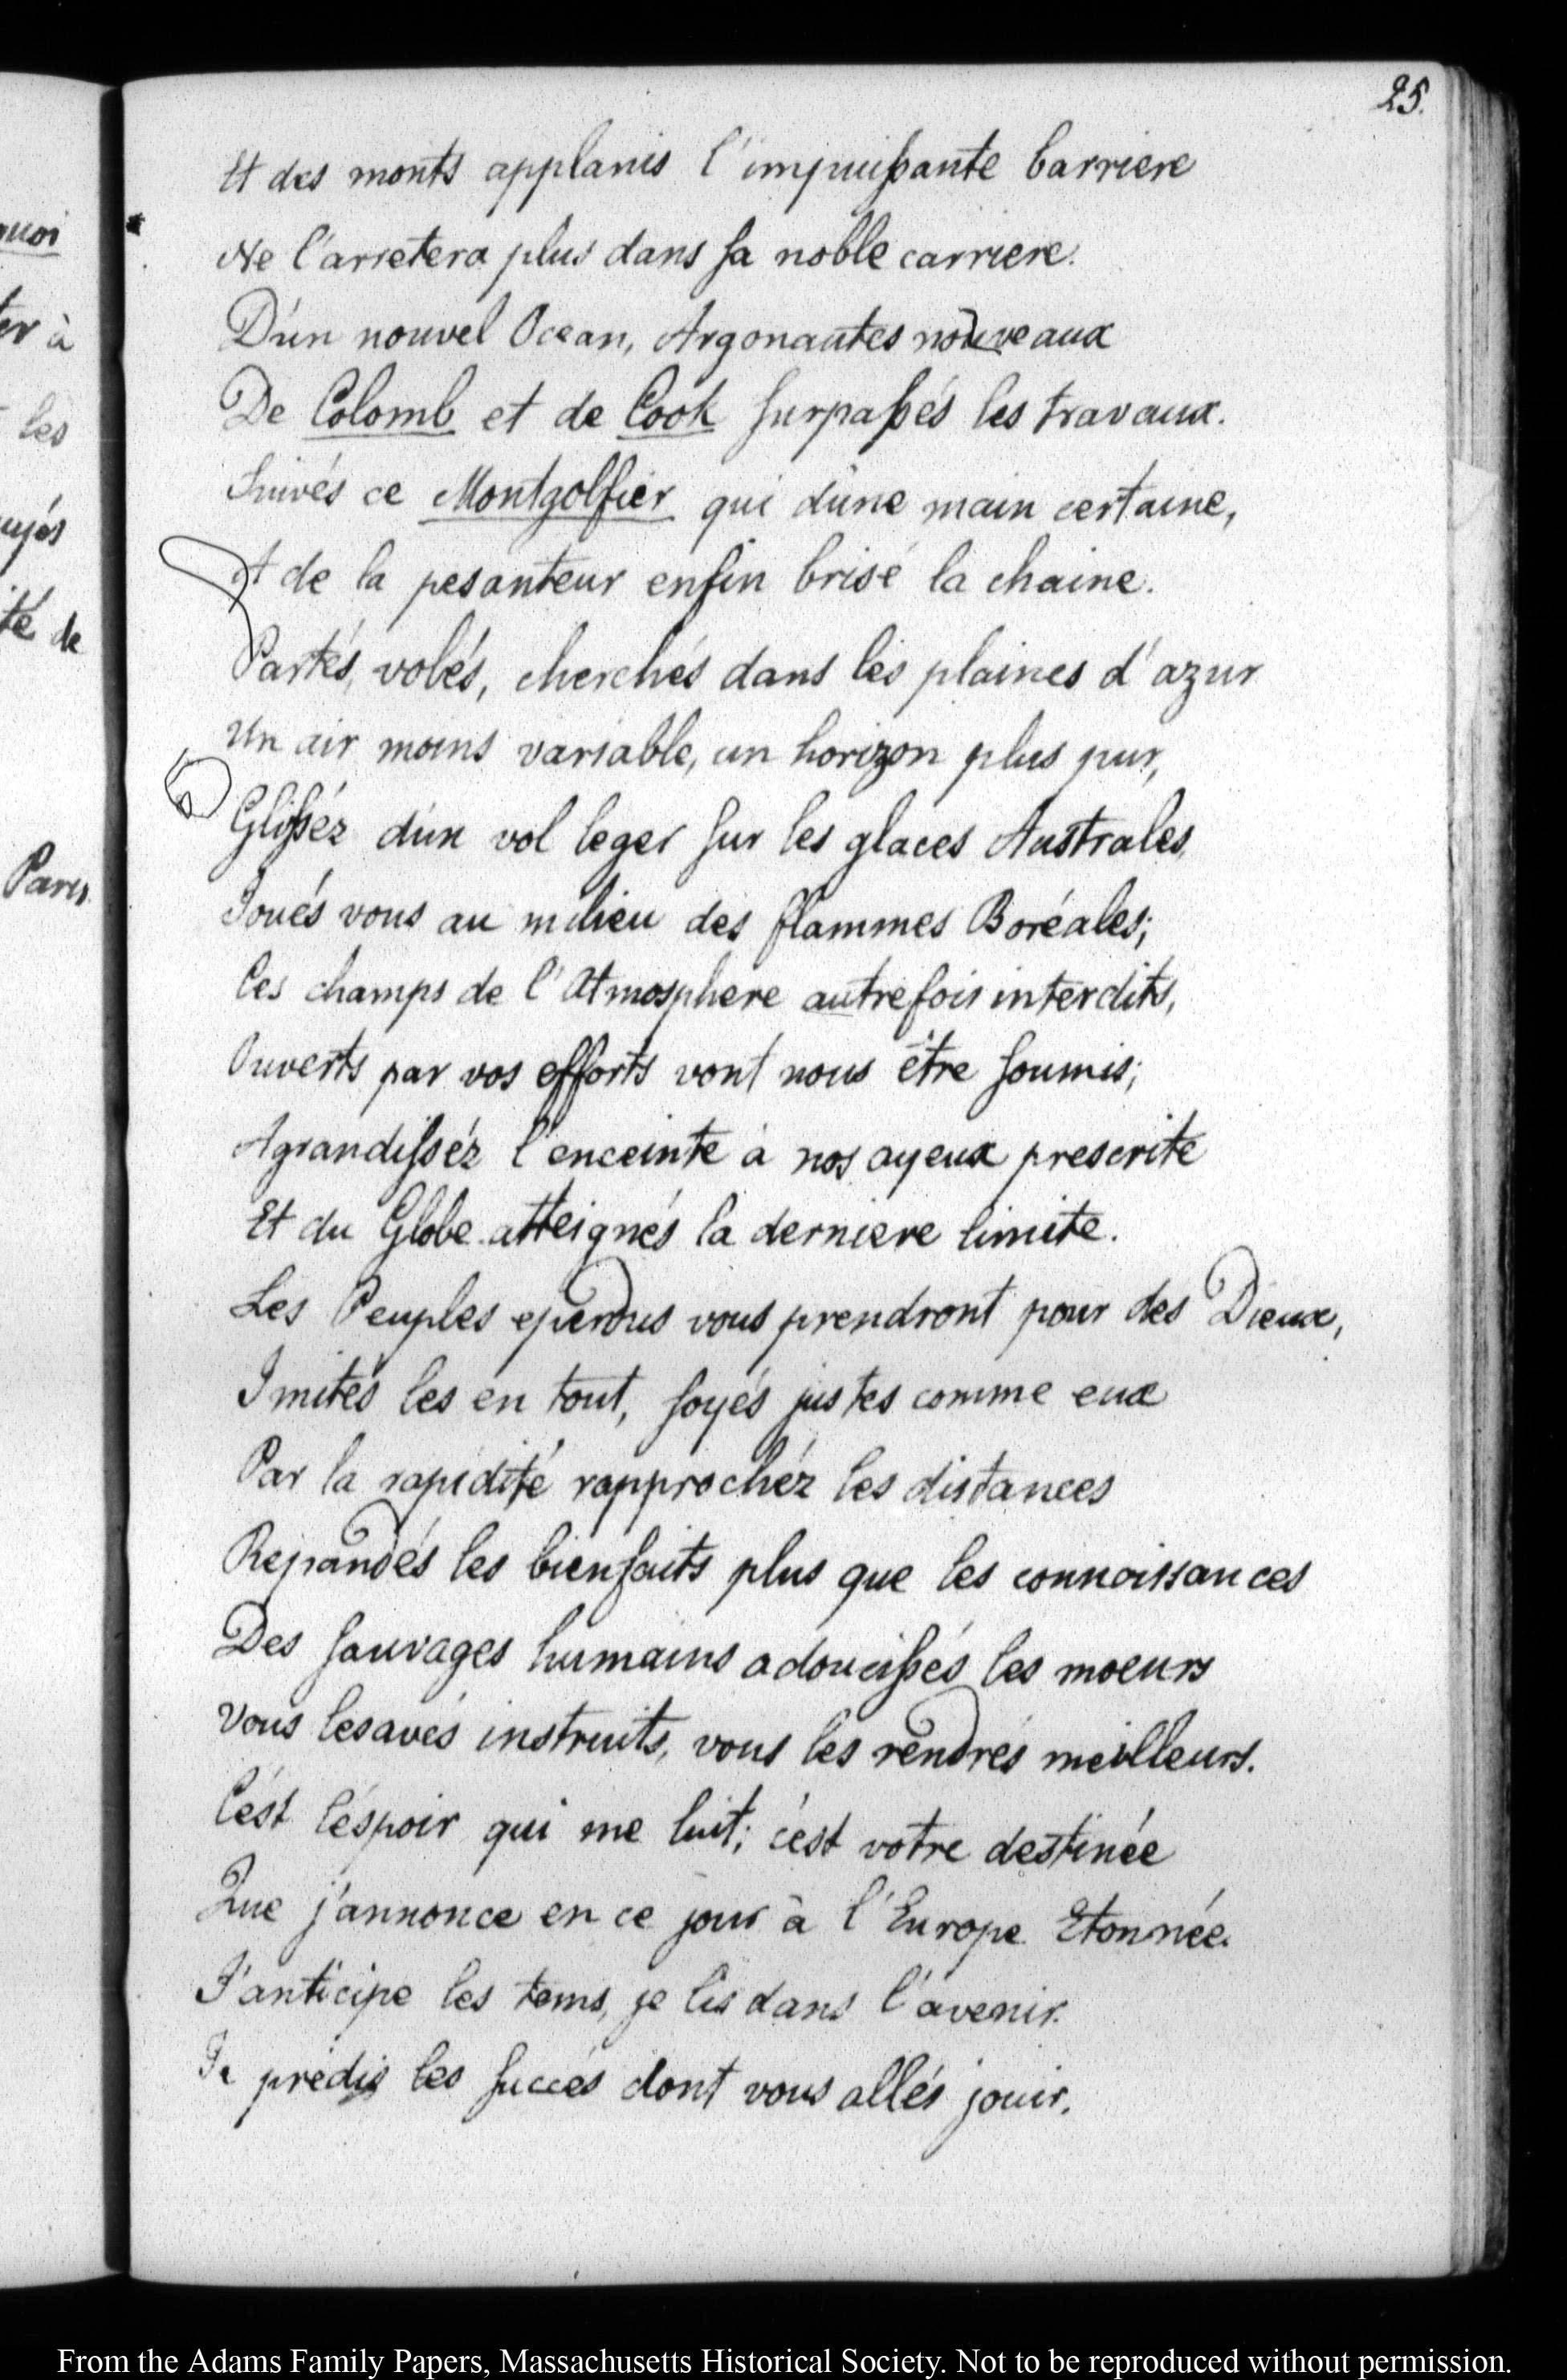 25.
quoi
ter à
les
uyés
ité de
Paris
Et des monts applanis l'impuissante barriere
Ne l'arretera plus dans sa noble carriere.
D'un nouvel Ocean, Argonautes nouveaux
De Colomb et de Cook surpassés les travaux.
Suivés ce Montgolfier qui d'une main certaine,
At de la pesanteur enfin brisé la chaine.
Partés, volés, cherchés dans les plaines d'azur
Un air moins variable, un horizon plus pur,
Glissés d'un vol leger sur les glaces Australes,
Joués vous au milieu des flammes Boréales;
Ces champs de l'Atmosphere autrefois interdits,
Ouverts par vos efforts vont nous être soumis;
Agrandissés l'enceinte à nos ayeux prescrite
Et du Globe atteignés la derniere limite.
Les Peuples eperdus vous prendront pour des Dieux,
Imités les en tout, soyés justes comme eux
Par la rapidité rapprochéz les distances
Repandés les bienfaits plus que les connoissances
Des sauvages humains adoucissés les moeurs
Vous les avés instruits, vous les rendrés meilleurs.
C'est l'éspoir qui me luit; c'est votre destinée
Que j'annonce en ce jour à l'Europe Etonnée.
J'anticipe les tems, je lis dans l'avenir.
Je prédis les succés dont vous allés jouir.
From the Adams Family Papers, Massachusetts Historical Society. Not to be reproduced without permission.